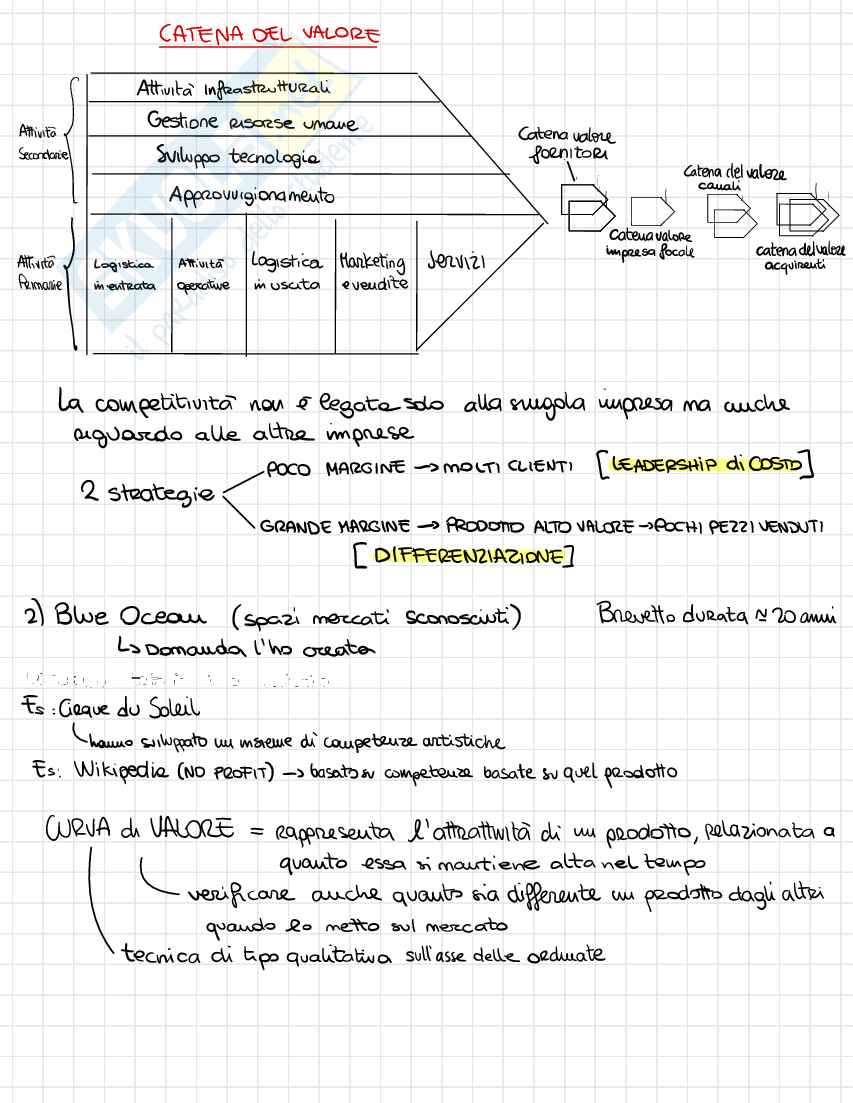 CATENA DEL VALORE
Attività Secondarie
Attività infrastrutturali
Gestione risorse umane
Sviluppo tecnologia
Approvvigionamento
Attività Primarie
Logistica in entrata
Attività operative
Logistica in uscita
Marketing e vendite
Servizi
Catena valore
fornitori
Catena valore
impresa focale
Catena del valore
canali
catena del valore
acquirenti
La competitività non è legata solo alla singola impresa ma anche
riguardo alle altre imprese
2 strategie
POCO MARGINE → MOLTI CLIENTI [LEADERSHIP di COSTO]
GRANDE MARGINE → PRODOTTO ALTO VALORE → POCHI PEZZI VENDUTI
[DIFFERENZIAZIONE]
2) Blue Ocean (spazi mercati sconosciuti) Brevetto durata ≃ 20 anni
↳ Domanda l'ho creata
Es: Cirque du Soleil
hanno sviluppato un insieme di competenze artistiche
Es: Wikipedia (NO PROFIT) → basato su competenze basate su quel prodotto
CURVA di VALORE = rappresenta l'attrattività di un prodotto, relazionata a
quanto essa si mantiene alta nel tempo
verificare anche quanto sia differente un prodotto dagli altri
quando lo metto sul mercato
tecnica di tipo qualitativa sull'asse delle ordinate